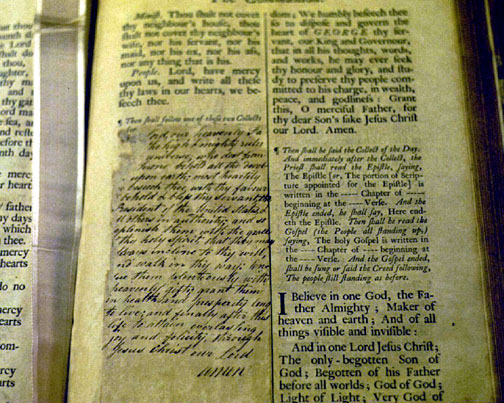 The Communion.
Minist. Thou shalt not covet
thy neighbour's house, thou
shalt not covet thy neighbour's
wife, nor his servant, nor his
maid, nor his ox, nor his ass,
nor any thing that is his.
People. Lord, have mercy
upon us, and write all these
thy laws in our hearts, we be-
seech thee.
¶ Then shall follow one of these two Collects
O Lord, our heavenly Fa
the high & mighty ruler
universe, who dost from
throne behold all the
upon earth; most heartily
beseech thee, with thy favour
behold & bless thy Servant the
President of the United States, &
all others in authority; and so
replenish them with the grace
thy holy Spirit that they may
always incline to thy will,
and walk in thy way: En-
due them plenteously with
heavenly gifts; grant them
in health and prosperity long
to live; and finally after this
life to attain everlasting
joy and felicity, through
Jesus Christ our Lord
amen
dom; We humbly beseech thee
so to dispose and govern the
heart of GEORGE thy ser-
vant, our King and Governour,
that in all his thoughts, words,
and works, he may ever seek
thy honour and glory, and stu-
dy to preserve thy people com-
mitted to his charge, in wealth,
peace, and godliness: Grant
this, O merciful Father, for
thy dear Son's sake Jesus Christ
our Lord. Amen.
¶ Then shall be said the Collect of the Day.
And immediately after the Collect, the
Priest shall read the Epistle, saying,
The Epistle [or, The portion of Scrip-
ture appointed for the Epistle] is
written in the —— Chapter of ——
beginning at the —— Verse. And the
Epistle ended, he shall say, Here end-
eth the Epistle. Then shall he read the
Gospel (the People all standing up,)
saying, The holy Gospel is written in
the —— Chapter of —— beginning at
the —— Verse. And the Gospel ended,
shall be sung or said the Creed following,
the People still standing as before.
I Believe in one God, the Fa-
ther Almighty; Maker of
heaven and earth; And of all
things visible and invisible:
And in one Lord Jesus Christ;
The only-begotten Son of
God; Begotten of his Father
before all worlds; God of God;
Light of Light; Very God of